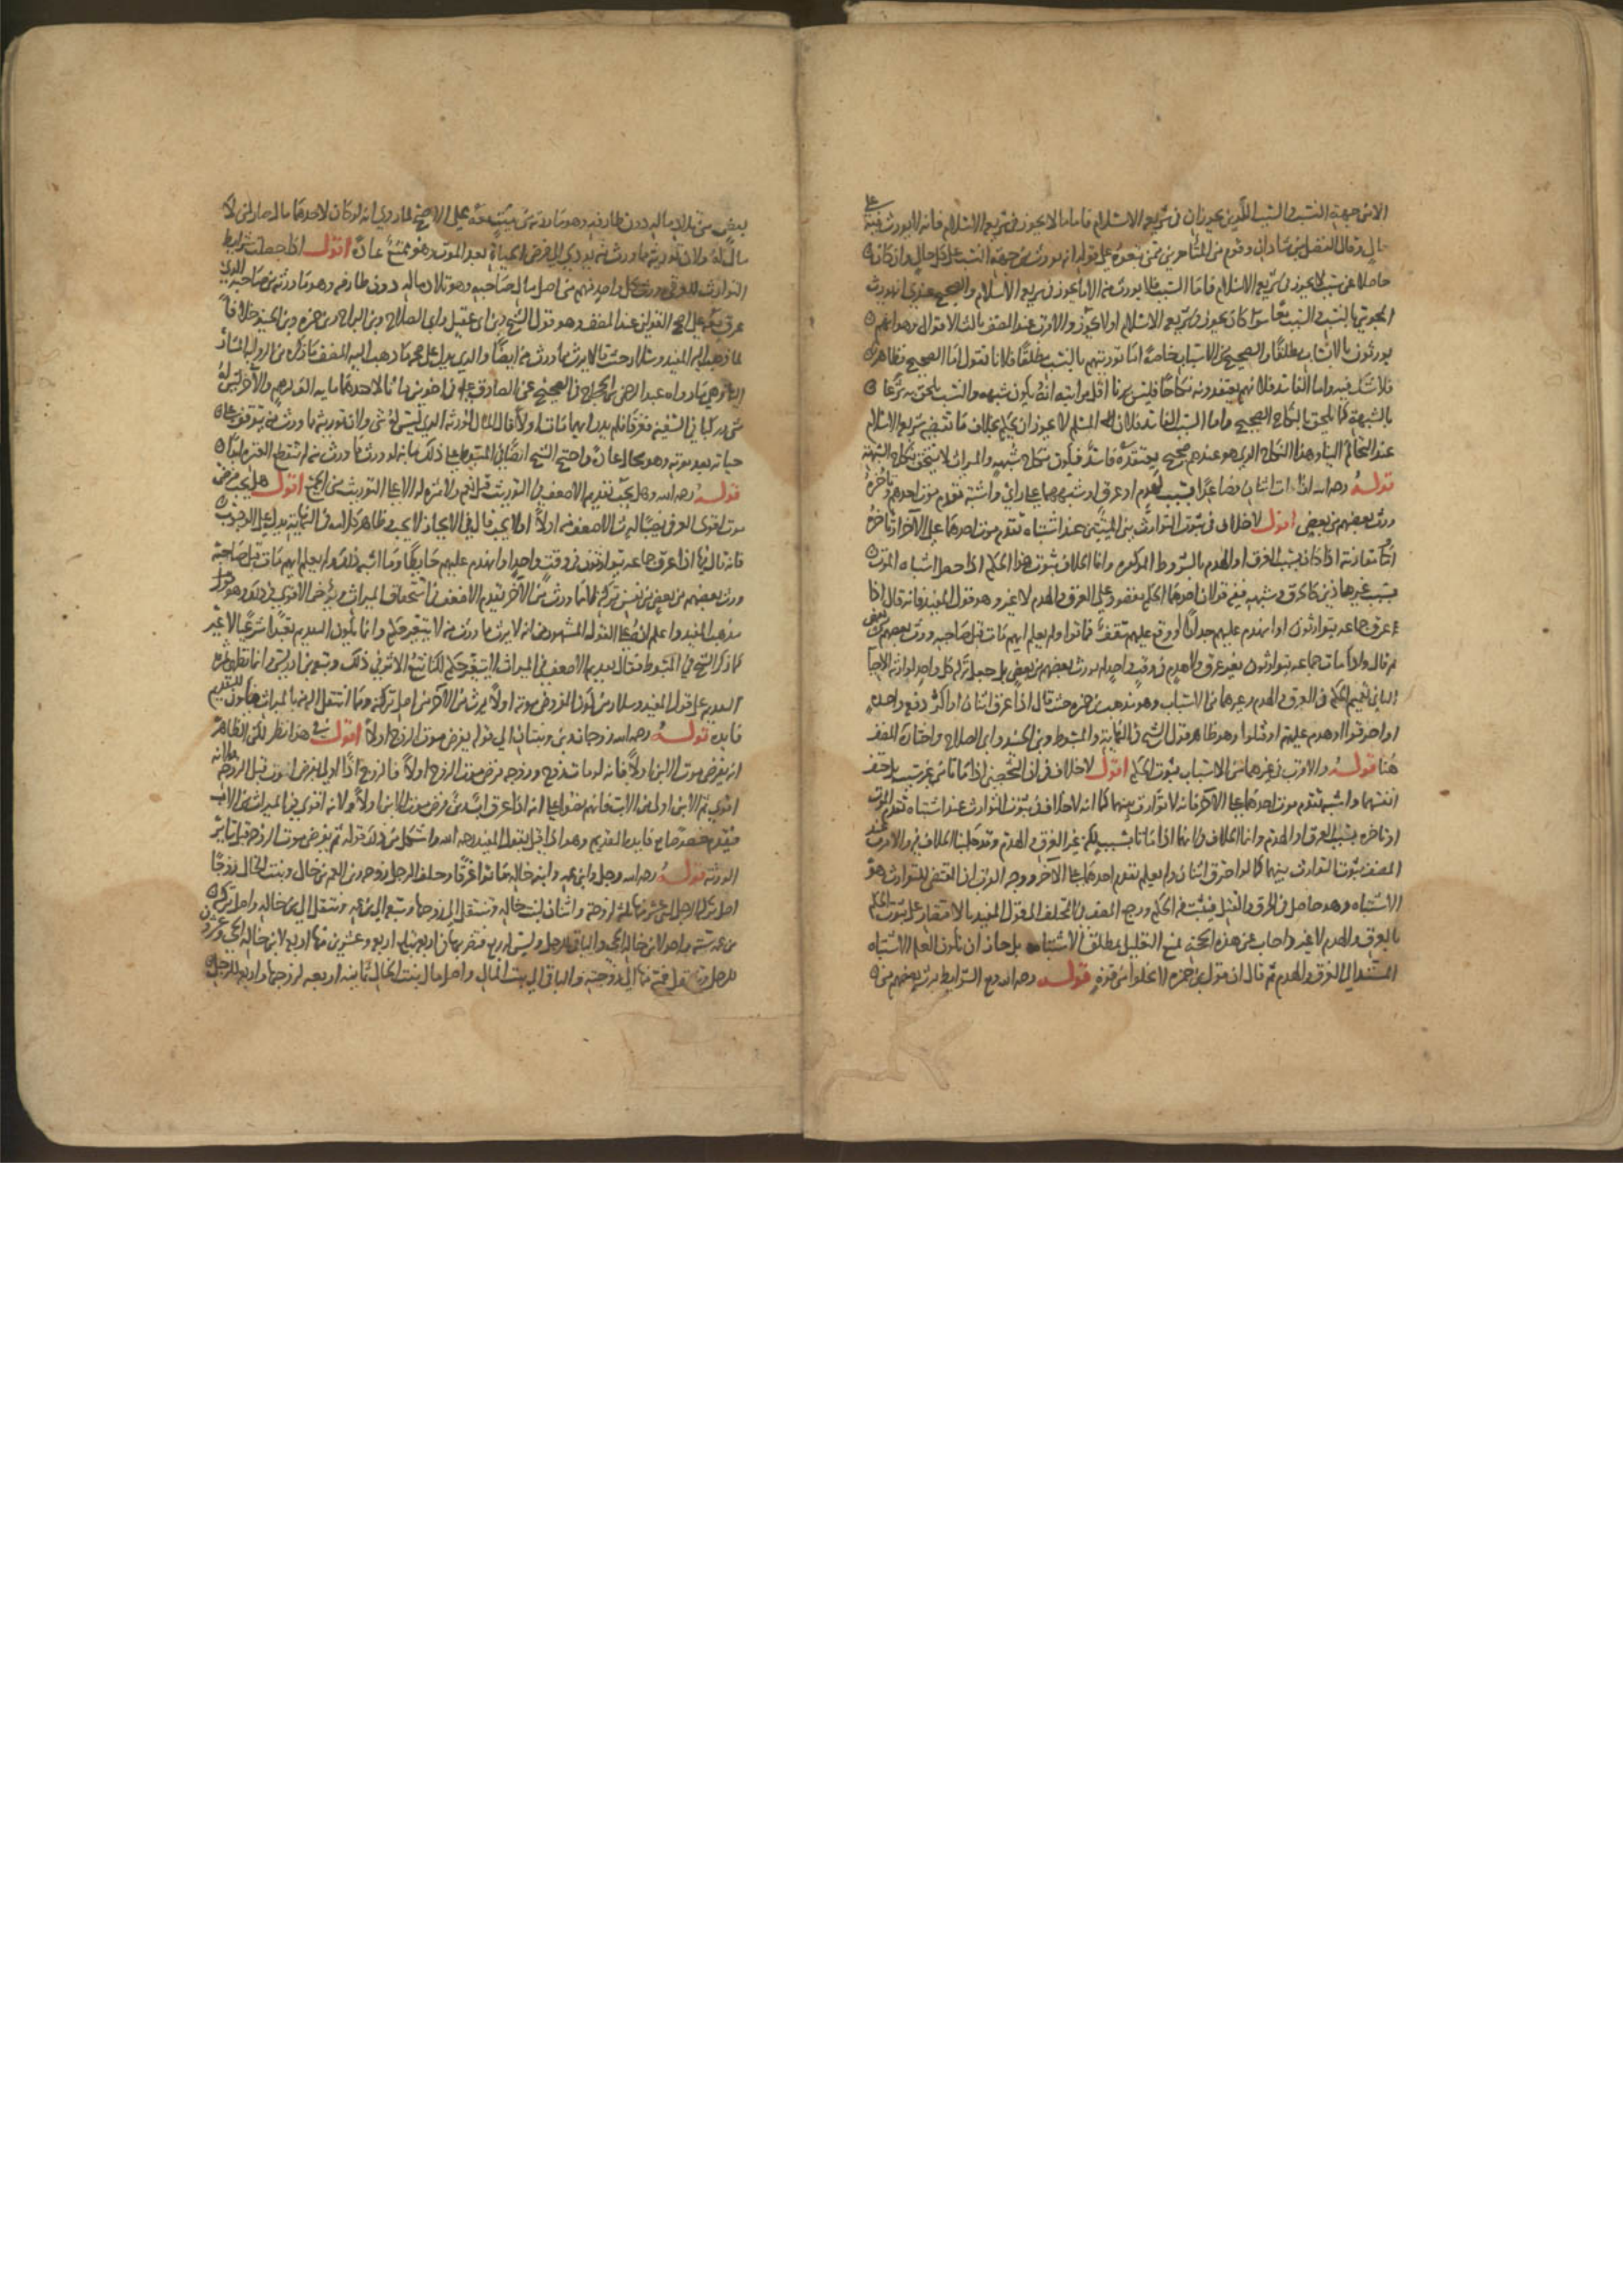 الا من جهة النسب والسبب اللذين يجوزان في شريعة الاسلام فاما ما لا يجوز في شريعة الاسلام فانه لا يورث فيه على
حال وقال الفضل بن شاذان وقوم من المتأخرين ممن تبعوه على قوله انه يورث من جهة النسب على كل حال وان كان
حاصلا عن سبب لا يجوز في شريعة الاسلام فاما السبب فلا يورث منه الا ما يجوز في شريعة الاسلام والصحيح عندي انه يورث
المجوسي بالنسب والسبب معا سواء كان يجوز في شريعة الاسلام او لا يجوز والاقرب عند المصنف ثالث الاقوال وهو انهم
يورثون بالانساب مطلقا والصحيح من الاسباب خاصة اما توريثهم بالنسب مطلقا فلانا نقول اما الصحيح فظاهر
فلا شك فيه واما الفاسد فلانهم يعتقدونه نكاحا فليس اقل مراتبه انه يكون شبهه والنسب يلحق به شرعا
بالشبهة كما يلحق بالنكاح الصحيح واما السبب الفاسد فلان المسلم لا يجوز ان يحكم بخلاف ما تقتضيه شريعة الاسلام
عند التحاكم الينا وهذا النكاح الذي هو عندهم صحيح يعتقده فاسدا فيكون نكاح شبهه والميراث لا يستحق بنكاح الشبهة
قوله رحمه الله اذا مات اثنان فصاعدا بسبب لهدم او غرق او شبههما على راي واشتبه تقدم موت احدهم وتاخره
ورث بعضهم من بعض اقول لا خلاف في ثبوت التوارث بين الميتين عند اشتباه تقدم موت احدهما على الآخر او تاخره
او مقارنته اذا كان بسبب الغرق او الهدم بالشروط المذكورة وانما الخلاف في ثبوت هذا الحكم اذا حصل اشتباه الموت
بسبب غير هاذين كالحرق وشبهه ففيه قولان احدهما الحكم مقصور على الغرق والهدم لا غير وهو قول المفيد فانه قال اذا
غرق جماعه يتوارثون او انهدم عليهم جدار او وقع عليهم سقف فماتوا ولم يعلم ايهم مات قبل صاحبه ورث بعضهم من بعض
ثم قال ولو مات جماعه يتوارثون بغير غرق ولا هدم في وقت واحد لم يورث بعضهم من بعض بل جعل تركة كل واحد لوارثه الاحيا
الثاني تعميم الحكم في الغرق والهدم وغيرهما من الاسباب وهو مذهب بن حمزه حيث قال اذا غرق اثنان او اكثر دفعة واحدة
او احرقوا او هدم عليهم او قتلوا وهو ظاهر قول الشيخ في النهاية والمبسوط وبن الجنيد وابي الصلاح واختاره المصنف
هنا قوله والاقرب في غيرهما من الاسباب ثبوت الحكم اقول لا خلاف في ان الشخصين اذا ماتا من غير سبب بل حتف
انفسهما واشتبه تقدم موت احدهما على الآخر فانه لا توارث بينهما كما انه لا خلاف في ثبوت التوارث عند اشتباه تقدم الموت
او تاخره بسبب الغرق او الهدم وانما الخلاف فيما اذا ماتا بسبب لكن غير الغرق والهدم وقد حكينا الخلاف فيه والاقرب عند
المصنف ثبوت التوارث بينهما كما لو احترق اثنان ولم يعلم تقدم احدهما على الآخر ووجه القرب ان المقتضي للتوارث هو
الاشتباه وهو حاصل في الحرق والقتل فيثبت الحكم ورجح المصنف في المختلف قول المفيد بالاقتصار على ثبوت الحكم
بالغرق والهدم لا غير واجاب عن هذه الحجة بمنع التعليل بمطلق الاشتباه بل جاز ان تكون العلة الاشتباه
المستند الى الغرق والهدم ثم قال ان قول بن حمزه لا يخلوا من قوة قوله رحمه الله ومع الشرائط يرث بعضهم من
بعض من تلاد ماله دون طارفه وهو ما ورثه من ميت معه على الاصح لما روي انه لو كان لاحدهما مال صار لمن لا
مال له ولان توريثه مما ورث منه يودي الى فرض الحياة بعد الموت وهو ممتنع عادة اقول اذا حصلت شرايط
التوارث للغرقى ورث كل واحد منهم من اصل مال صاحبه وهو تلاد ماله دون طارفه وهو ما ورثه من صاحبه الذي
غرق معه على اصح القولين عند المصنف وهو قول الشيخ وبن ابي عقيل وابي الصلاح وبن البراج وبن حمزه وبن الجنيد خلافا
لما ذهب اليه المفيد وسلار حيث قالا يرث مما ورث منه ايضا والذي يدل على صحة ما ذهب اليه المصنف ما ذكره من الرواية المشار
اليها وهي ما رواه عبد الرحمن بن الحجاج في الصحيح عن الصادق عليه السلام في اخوين ماتا لاحدهما مايه الف درهم والآخر ليس له
شي ركبا في السفينة فغرقا فلم يدر ايهما مات اولا قال المال لورثة الذي ليس له شي ولان توريثه مما ورث منه يتوقف على
حياته بعد موته وهو محال عادة واحتج الشيخ ايضا في المبسوط على ذلك بانه لو ورث مما ورث منه لم تنقطع القسمة ابدا
قوله رحمه الله وهل يجب تقديم الاضعف في التوريث قيل نعم ولا ثمرة له الا على التوريث من الجميع اقول هل يجب فرض
موت اقوى الغرقى نصيبا ليرث الاضعف منه اولا ام لا يجب قال في الايجاز لا يجب وظاهر كلامه في النهاية يدل على الوجوب
فانه قال فيها اذا غرق جماعه يتوارثون في وقت واحد او انهدم عليهم حايط وما اشبه ذلك ولم يعلم ايهم مات قبل صاحبه
ورث بعضهم من بعض من نفس تركته لا مما ورث من الآخر يقدم الاضعف في استحقاق الميراث ويؤخر الاقوى في ذلك وهو
مذهب المفيد واعلم ان على القول المشهور من انه لا يرث مما ورث منه لا يتغير حكم وانما يكون التقديم تعبدا شرعيا لا غير
كما ذكر الشيخ في المبسوط فقال تقديم الاضعف في الميراث لا يتغير حكم لكنا نتبع الاثر في ذلك وتبعه بن ادريس وانما تظهر ثمرة
التقديم على قول المفيد وسلار من كون المفروض موته اولا يرث من الآخر من اصل تركته ومما انتقل اليه بالميراث فيكون للتقديم
فايدة قوله رحمه الله زوجان وبن وبنتان الى قوله يفرض موت الزوج اولا اقول في هذا نظر لكن الظاهر
انه يفرض موت الابن اولا فانه لو مات زوج وزوجه فرض موت الزوج اولا فالزوج اذا
اقوى ثم الابن اولى من الاب فانهم نصوا على انه اذا غرق اب وبن فرض موت الابن اولا ولانه اقوى في الميراث من الاب
فيقدم فايدة التقديم وهو انما بقول المفيد رحمه الله ذلك قوله ثم يفرض موت الزوج
الورثة قوله رحمه الله رجل وابن عمه وابنه خاله ماتوا غرقا وخلف الرجل زوجه وبن العم بن خال وبنت الخال زوجا
اصل تركة الرجل اثنا عشر منها ثلاثة لزوجته واثنان لبنت خاله وينتقل الى زوجها وسبعه الى بن عمه وينتقل الى بن خاله واصل تركة
بن عمه ستة واحد لابن خاله الحي والباقي للرجل وليس له ربع فتضربها في اربعة تبلغ اربعه وعشرين منها اربعة لابن خاله الحي وعشرون
للرجل تنتقل خمسة منها الى زوجته والباقي الى بنت الخال واصل مال بنت الخال ثمانية اربعة لزوجها واربعة للرجل